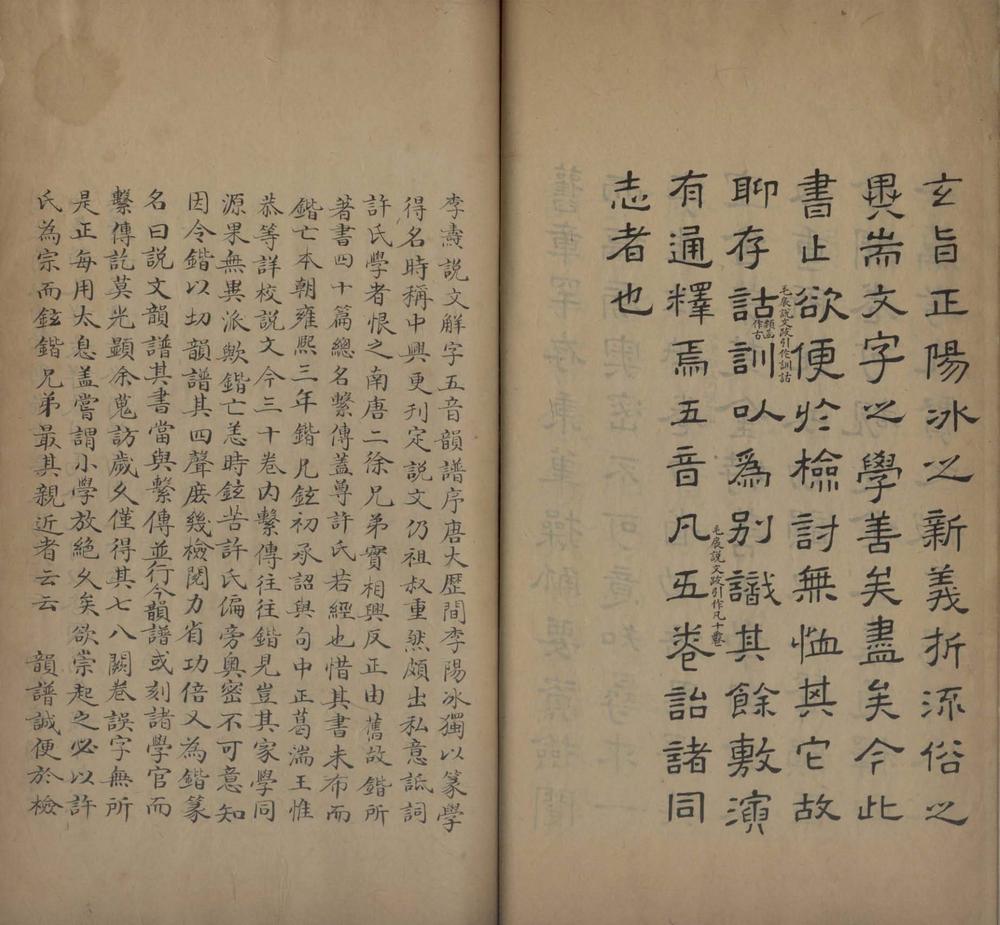 玄旨正陽冰之新義折流俗之
異耑文字之學善矣盡矣今此
書止欲便於檢討無恤其它故
聊存詁訓以爲別識其餘敷演
毛扆說文跋引作訓詁
類函作古
有通釋焉五音凡五卷詒諸同
毛扆說文跋引作凡十卷
志者也
李燾說文解字五音韻譜序唐大歷間李陽冰獨以篆學
得名時稱中興更刋定說文仍祖叔重然頗出私意詆訶
許氏學者恨之南唐二徐兄弟實相與反正由舊故鍇所
著書四十篇總名繫傳蓋尊許氏若經也惜其書未布而
鍇亡本朝雍熙三年鍇兄鉉初承詔與句中正葛湍王惟
恭等詳校說文今三十卷內繫傳往往鍇見豈其家學同
源果無異派歟鍇亡恙時鉉苦許氏偏旁奧密不可意知
因令鍇以切韻譜其四聲庶幾檢閱力省功倍又為鍇篆
名曰說文韻譜其書當與繫傳並行今韻譜或刻諸學官而
繫傳訖莫光顯余蒐訪歲久僅得其七八闕卷誤字無所
是正每用太息蓋嘗謂小學放絕久矣欲崇起之必以許
氏為宗而鉉鍇兄弟最其親近者云云 韻譜誠便於檢